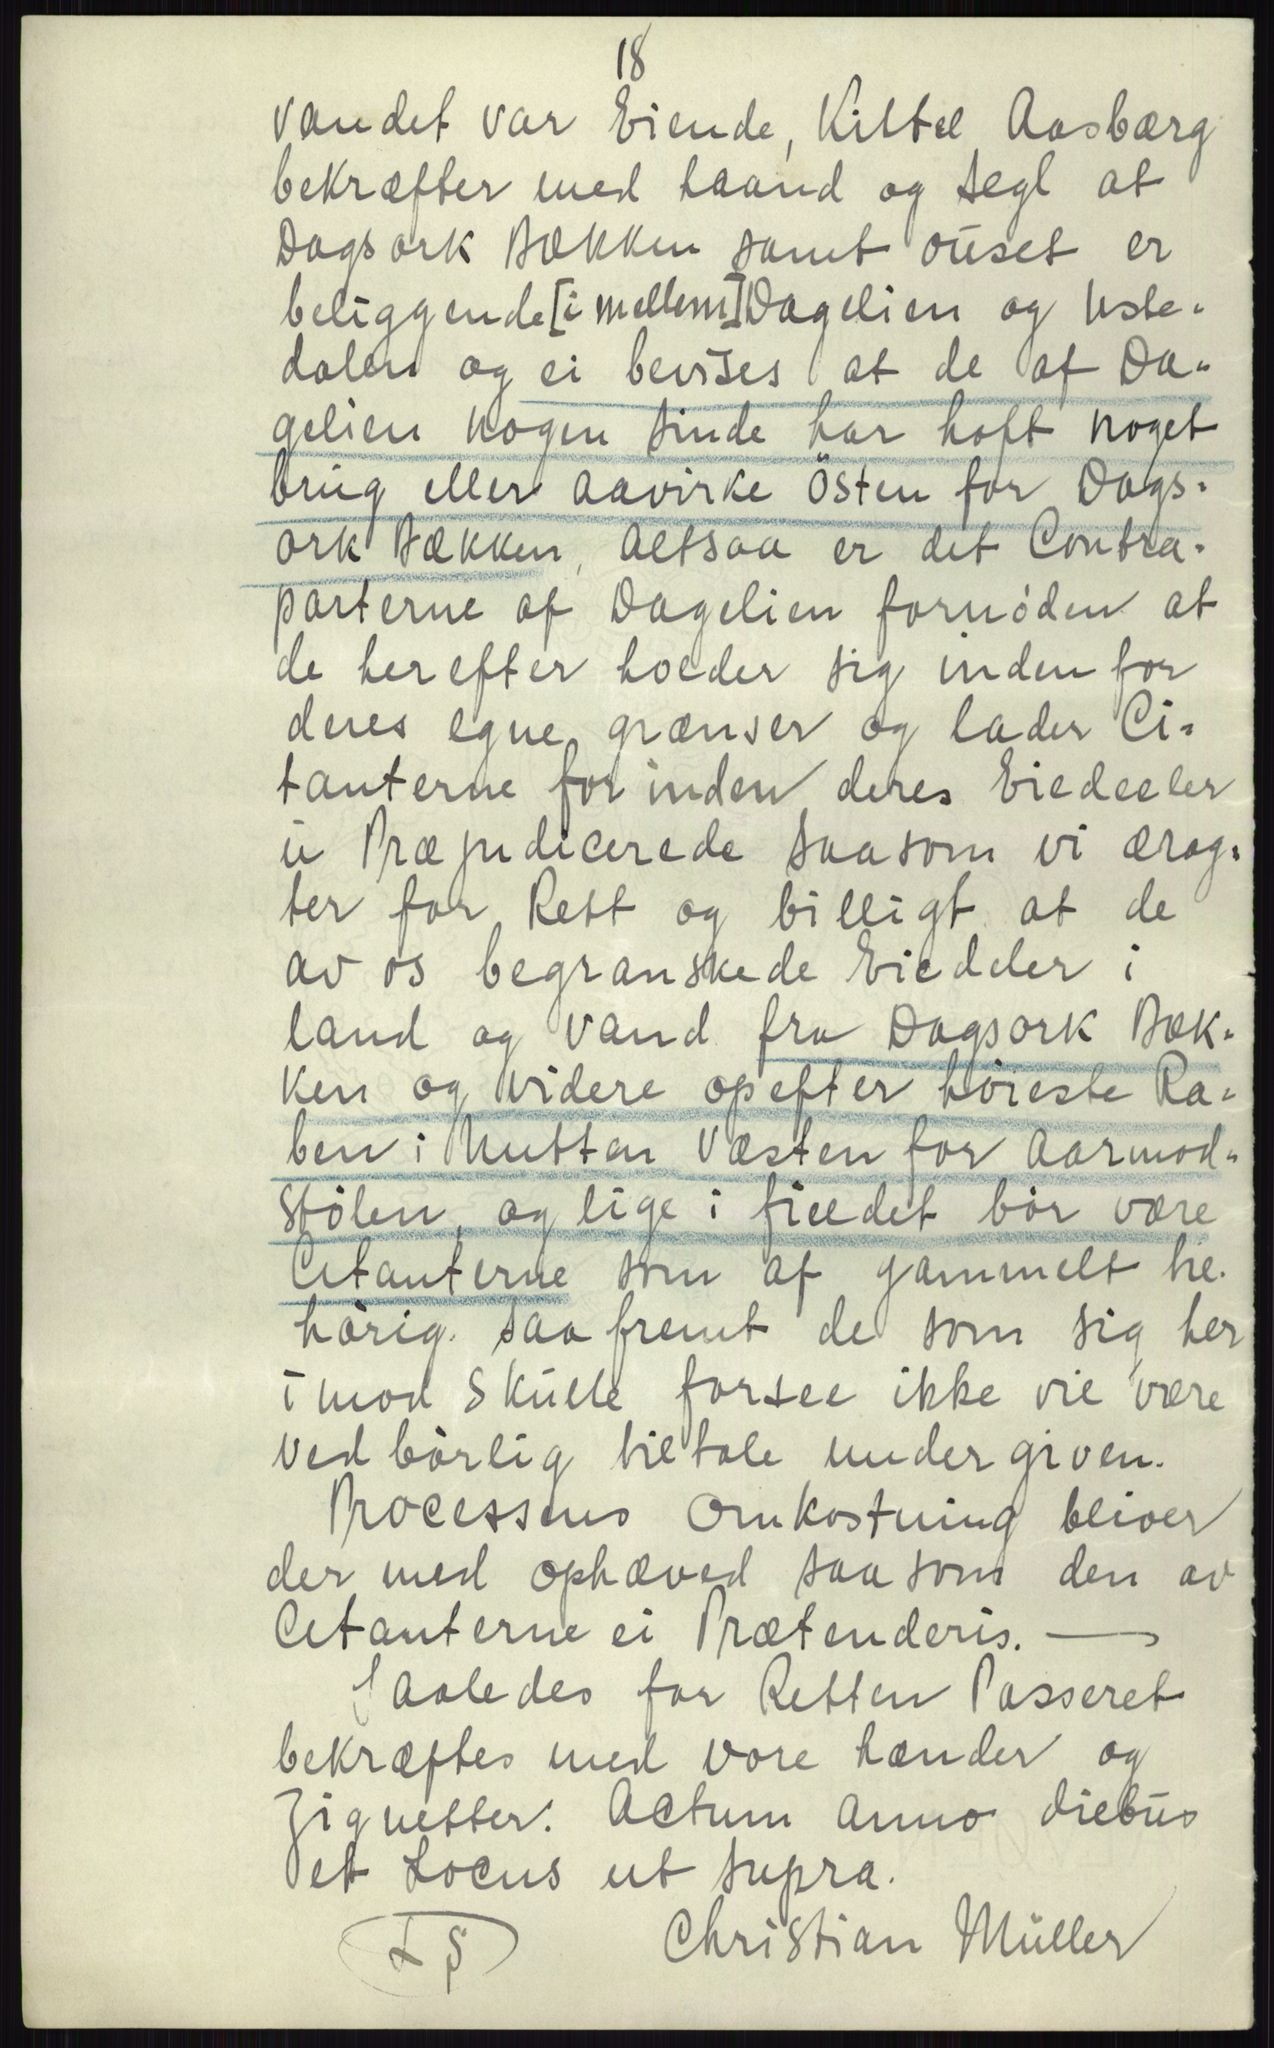 18
vandet var Eiende, Kittel Aasbærg
bekræfter med haand og segl at
Dagsork Bækken samt ouset er
beliggende [i mellem] Dagelien og Uste-
dalen og ei bevises at de af Da-
gelien nogen sinde har haft noget
brug eller aavirke Östen for Dags-
ork Bækken, altsaa er det Contra-
parterne af Dagelien fornöden at
de her efter holder sig inden for
deres egne grænser og lader Ci-
tanterne for inden deres Eiedeeler
u Præjudicerede saasom vi ærag-
ter for Rett og billigt at de
av os begranskede Eiedeler i
land og vand fra Dagsork Bæk-
ken og videre opefter höieste Ra-
ben i Nutten Væsten for Aarmod-
stölen, og lige i fieldet bör være
Citanterne som af gammelt be-
hörig. saa fremt de som sig her
imod skulle forsee ikke vil være
ved börlig tiltale under given.
Processens Omkostning bliver
der med ophæved saa som den av
Citanterne ei Prætenderis. —
Saaledes for Retten Passeret
bekræftes med vore hænder og
Zignetter. Actum Anno diebus
et Locus ut supra.
L S Christian Müller